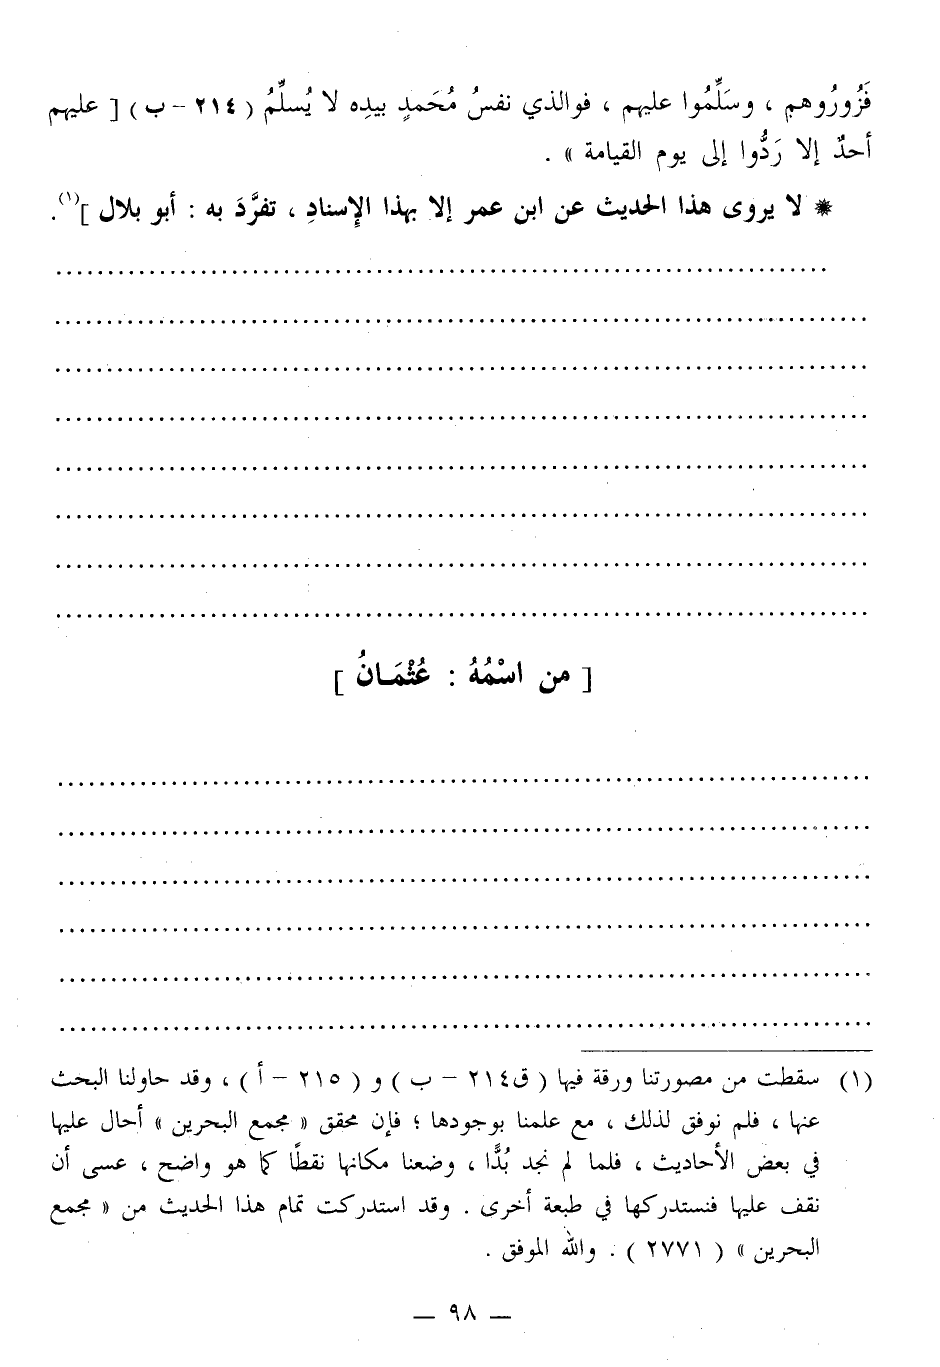 فَزُورُوهم ، وسَلِّمُوا عليهم ، فوالذي نفسُ مُحَمدٍ بيدِه لا يُسلِّمُ ( ٢١٤ – ب ) [ عليهم
أحدٌ إلا رَدُّوا إلى يوم القيامة » .
* لا يروى هذا الحديث عن ابن عمر إلا بهذا الإسنادِ ، تفرَّدَ به : أبو بلال ](١).
................................................................................
................................................................................
................................................................................
................................................................................
................................................................................
................................................................................
................................................................................
................................................................................
[ من اسْمُهُ : عُثْمَـانُ ]
................................................................................
................................................................................
................................................................................
................................................................................
................................................................................
................................................................................
(١) سقطت من مصورتنا ورقة فيها ( ق٢١٤ – ب ) و ( ٢١٥ – أ ) ، وقد حاولنا البحث
عنها ، فلم نوفق لذلك ، مع علمنا بوجودها ؛ فإن محقق « مجمع البحرين » أحال عليها
في بعض الأحاديث ، فلما لم نجد بُدًّا ، وضعنا مكانها نقطًا كما هو واضح ، عسى أن
نقف عليها فنستدركها في طبعة أخرى . وقد استدركت تمام هذا الحديث من « مجمع
البحرين » ( ٢٧٧١ ) . والله الموفق .
— ٩٨ —